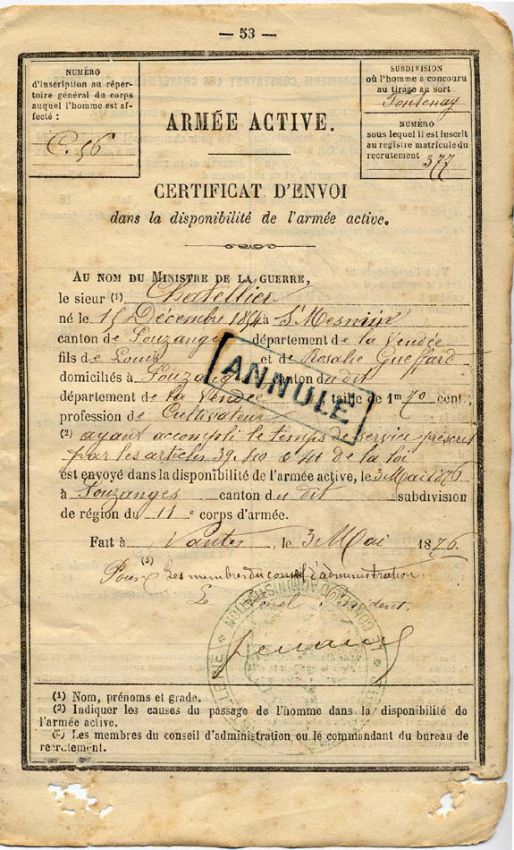 — 53 —
NUMÉRO
d'inscription au réper-
toire général du corps
auquel l'homme est af-
fecté :
C. 56
SUBDIVISION
où l'homme a concouru
au tirage au sort
Fontenay
NUMÉRO
sous lequel il est inscrit
au registre matricule du
recrutement 377
ARMÉE ACTIVE.
CERTIFICAT D'ENVOI
dans la disponibilité de l'armée active.
AU NOM DU MINISTRE DE LA GUERRE,
le sieur (1) Chatellier
né le 15 Décembre à St Mesmin
canton de Pouzanges département de la Vendée
fils de Louis et de Rosalie Gueffard
domiciliés à canton du dit
département de la Vendée taille de 1m 70 cent;
profession de Cultivateur
(2) ayant accompli le temps de service prescrit
par les articles 39. 40 & 41 de la loi
est envoyé dans la disponibilité de l'armée active, le 3 Mai 1876
à Pouzanges canton du dit subdivision
de région du 11e corps d'armée.
ANNULÉ
Fait à Nantes, le 3 Mai 1876
(3)
Pour Les membres du conseil d'administration
Président.
CONSEIL D'ADMINISTRATION
(1) Nom, prénoms et grade.
(2) Indiquer les causes du passage de l'homme dans la disponibilité de
l'armée active.
(3) Les membres du conseil d'administration ou le commandant du bureau de
recrutement.